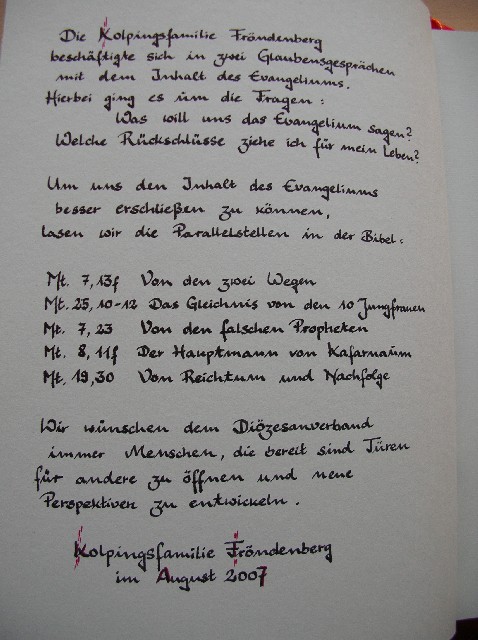 Die Kolpingsfamilie Fröndenberg
beschäftigte sich in zwei Glaubensgesprächen
mit dem Inhalt des Evangeliums.
Hierbei ging es um die Fragen:
Was will uns das Evangelium sagen?
Welche Rückschlüsse ziehe ich für mein Leben?
Um uns den Inhalt des Evangeliums
besser erschließen zu können,
lasen wir die Parallelstellen in der Bibel:
Mt. 7,13f Von den zwei Wegen
Mt. 25,10-12 Das Gleichnis von den 10 Jungfrauen
Mt. 7,23 Von den falschen Propheten
Mt. 8,11f Der Hauptmann von Kafarnaum
Mt. 19,30 Von Reichtum und Nachfolge
Wir wünschen dem Diözesanverband
immer Menschen, die bereit sind Türen
für andere zu öffnen und neue
Perspektiven zu entwickeln.
Kolpingsfamilie Fröndenberg
im August 2007